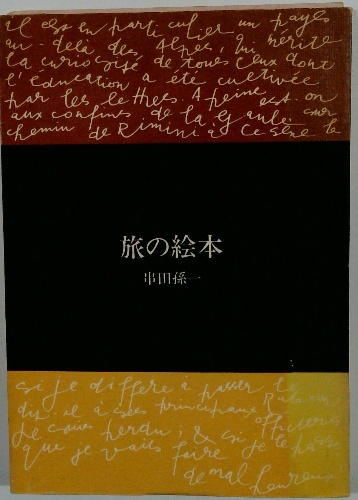 il est en particulier un pays
au-delà des Alpes, qui mérite
la curiosité de tous ceux dont
l'éducation a été cultivée
par les lettres. A peine est-on
aux confins de la Gaule sur
chemin de Rimini à Cesène la
旅の絵本
串田孫一
si je differe à passer le Rubicon
dit-il à ses principaux officiers
je suis perdu, & si je le passe
que je vais faire
de malheureux